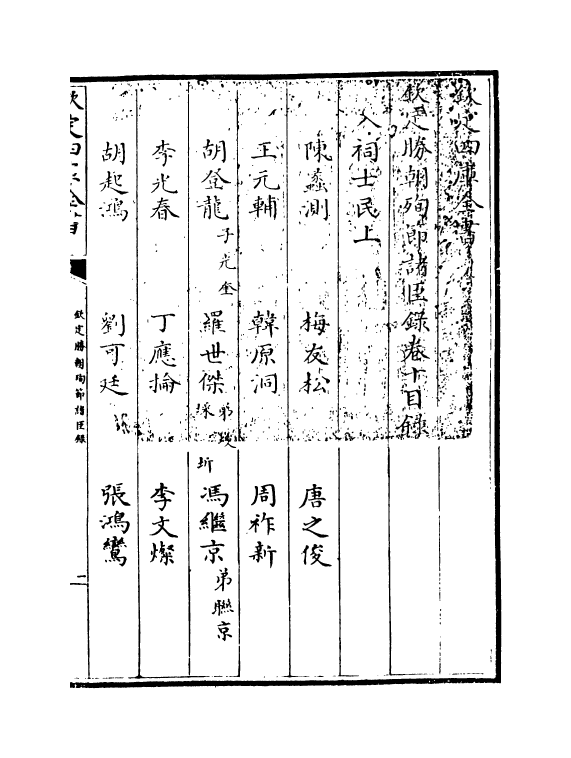 欽定四庫全書
欽定勝朝殉節諸臣錄卷十目錄
入祠士民上
陳蠡測 梅友松 唐之俊
王元輔 韓原洞 周祚新
胡登龍 子光奎 羅世傑 弟 馮繼京 弟聮京
李光春 丁應掄 李文燦
胡起鴻 劉可廷 張鴻鸞
欽定四庫全書
欽定勝朝殉節諸臣錄
二